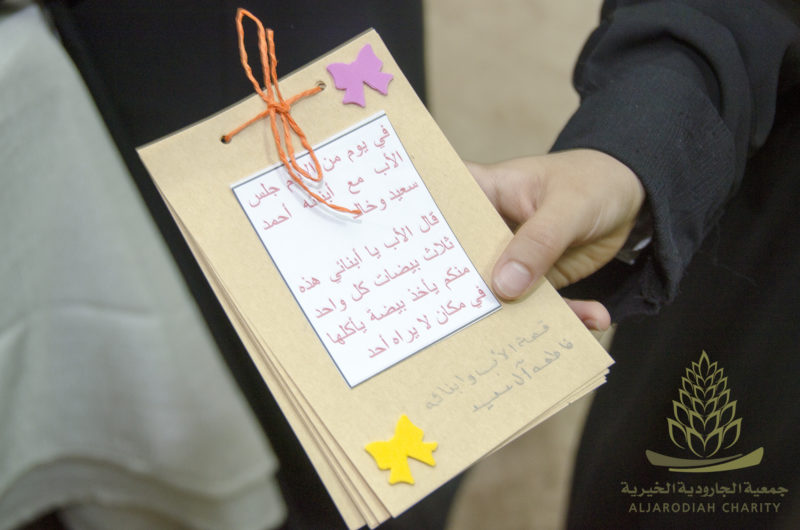 في يوم من الأيام جلس
الأب مع أبنائه أحمد
سعيد وخالد
قال الأب يا أبنائي هذه
ثلاث بيضات كل واحد
منكم يأخذ بيضة يأكلها
في مكان لا يراه أحد
قصة الأب وأبنائه
فاطمه آل سعيد
جمعية الجارودية الخيرية
ALJARODIAH CHARITY